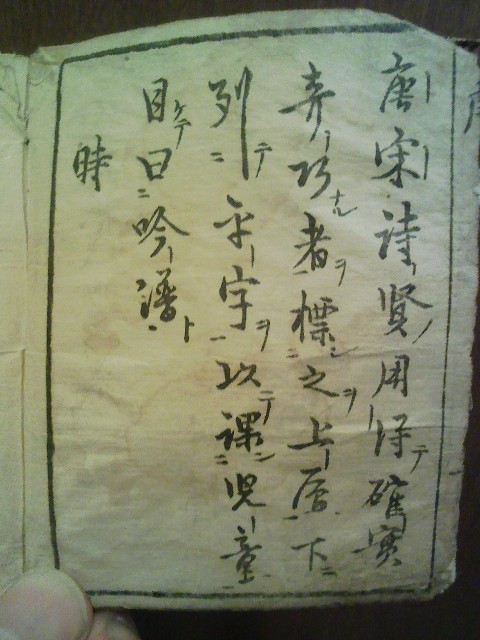 唐宋詩賢ノ用得テ確實
奇巧ナル者ヲ標シ之ヲ上層下ニ
列テ平字ヲ以テ課シ児童
目ケテ曰吟譜ト
時